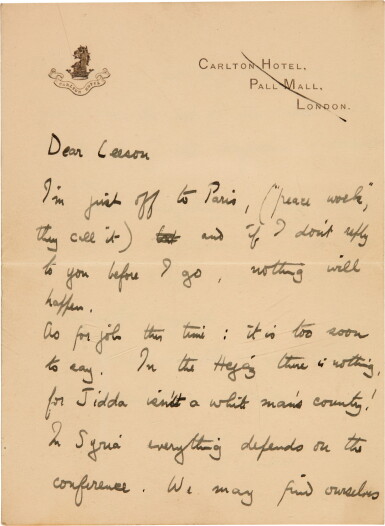 CARLTON HOTEL,
PALL MALL,
LONDON.
Dear Leeson
I'm just off to Paris, ("peace work",
they call it) but and if I don't reply
to you before I go, nothing will
happen.
As for jobs this time: it is too soon
to say. In the Hejaz there is nothing,
for Jidda isn't a white man's country!
In Syria everything depends on the
conference. We may find ourselves